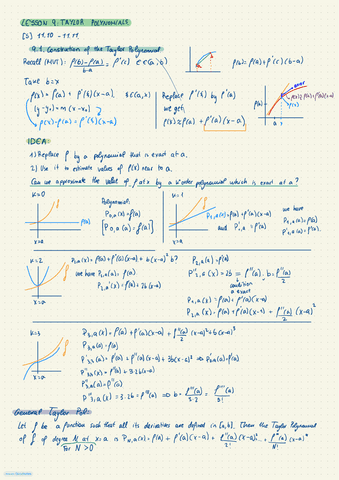 LESSON 9: TAYLOR POLYNOMIALS
9.1. Construction of the Taylor Polynomial
Recall (MVT): f(b)-f(a) / b-a = f'(c) c∈(a,b) f(b)=f(a)+f'(c)(b-a)
Take b=x
f(x) = f(a) + f'(ξ)(x-a) ξ∈(a,x)
(y-y₀)=m(x-x₀)
f(x)-f(a)=f'(ξ)(x-a)
Replace f'(ξ) by f'(a)
we get
f(x)≈f(a)+f'(a)(x-a)
IDEA
1) Replace f by a polynomial that is exact at a.
2) Use it to estimate values of f(x) near to a.
Can we approximate the value of f at x by a k-order polynomial which is exact at a?
k=0
Polynomial
P₀,a(x)=f(a)
[P₀,a(a)=f(a)]
f(a)
x=a
k=1
P₁,a(x)=f(a)+f'(a)(x-a)
and P'₁,a = f'(a)
we have
P₁,a(a)=f(a)
P'₁,a(a)=f'(a)
x=a
k=2 P₂,a(x)=f(a)+f'(a)(x-a)+b(x-a)² b?
we have P₂,a(a)=f(a)
P₂,a'(x)=f'(a)+2b(x-a)
x=a
P₂,a(a)=f(a)
P''₂,a(x)=2b=f''(a), b=f''(a)/2
condition
a exact
P₁,a(x)=f(a)+f'(a)(x-a)
P₂,a(x)=f(a)+f'(a)(x-a)+f''(a)/2 (x-a)²
k=3 P₃,a(x)=f(a)+f'(a)(x-a)+f''(a)/2 (x-a)²+b(x-a)³
P₃,a(a)=f(a)
P'₃,a(x)=f'(a)+f''(a)(x-a)+3b(x-a)² ⇒ P'₃,a(a)=f'(a)
P''₃,a(x)=f''(a)+3·2b(x-a)
P''₃,a(a)=f''(a)
P'''₃,a(x)=3·2b=f'''(a) ⇒ b=f'''(a)/3·2 = f'''(a)/3!
x=a
General Taylor Pol:
Let f be a function such that all its derivatives are defined in [a,b]. Then the Taylor Polynomial
of f of degree N at x=a is P_N,a(x)=f(a)+f'(a)(x-a)+f''(a)/2 (x-a)²+...+fᴺ(a)/N! (x-a)ᴺ
for N>0